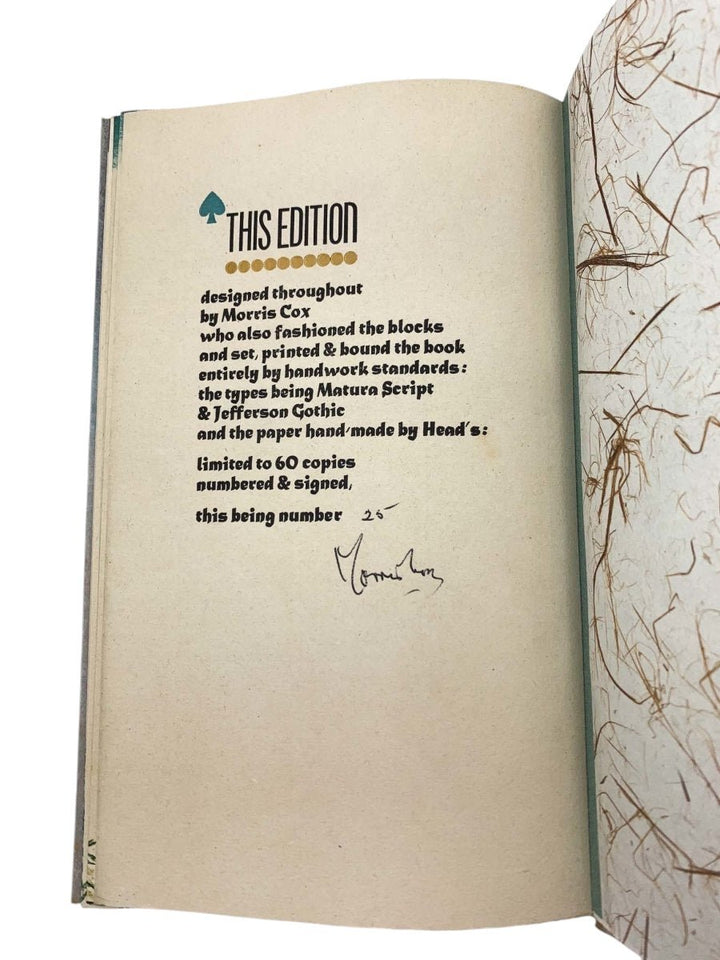 THIS EDITION
designed throughout
by Morris Cox
who also fashioned the blocks
and set, printed & bound the book
entirely by handwork standards:
the types being Matura Script
& Jefferson Gothic
and the paper hand-made by Head's:
limited to 60 copies
numbered & signed,
this being number 25
Morris Cox